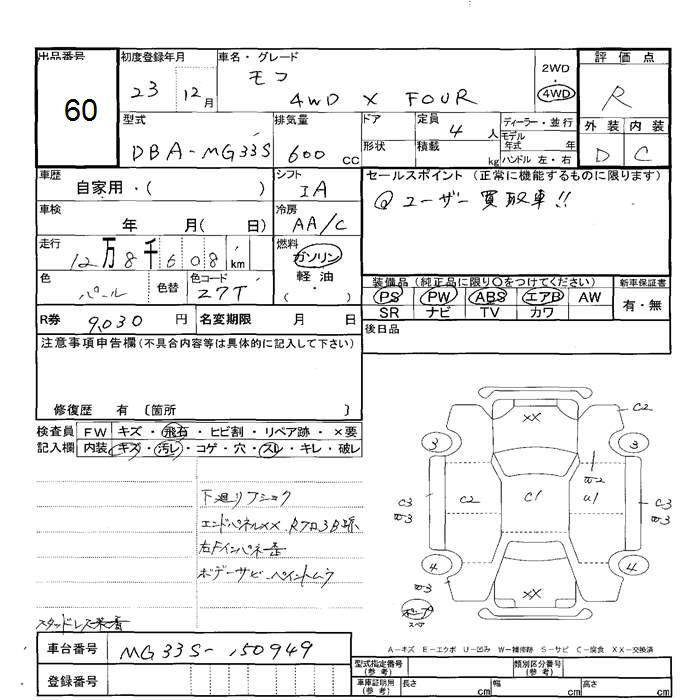 出品番号 初度登録年月 車名・グレード 評価点
60
23 12月
モコ
4WD X FOUR
2WD
4WD
R
型式 排気量 ドア 定員 4人 ディーラー・並行
DBA-MG33S 600cc 形状 積載 kg モデル年式 年
ハンドル 左・右
外装 内装
D C
車歴 シフト セールスポイント(正常に機能するものに限ります)
自家用・( ) IA
@ユーザー買取車!!
車検 冷房
年 月( 日) AA/C
走行 燃料
12万8千608km ガソリン
軽油
( )
色 色替 色コード
パール 27T
装備品(純正品に限り○をつけてください) 新車保証書
PS PW ABS エアB AW 有・無
SR ナビ TV カワ
R券 9,030円 名変期限 月 日
後日品
注意事項申告欄(不具合内容等は具体的に記入して下さい)
修復歴 有 〔箇所 〕
検査員 FW キズ・飛石・ヒビ割・リペア跡・×要
記入欄 内装 キズ・汚レ・コゲ・穴・スレ・キレ・破レ
下廻りフショク
エンドパネルXX.
右Fインパネ歪
ボデーサビ ペイントムラ
XX
C2
3 3
C2 C1 U1
C3
C3
4 4
XX
A-キズ E-エクボ U-凹み W-補修跡 S-サビ C-腐食 XX-交換済
車台番号 MG33S-150949
登録番号
型式指定番号(参考) 類別区分番号(参考)
車庫証明用(参考) 長さ cm 幅 cm 高さ cm